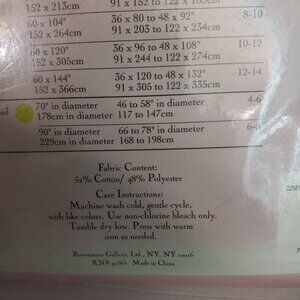 152 x 213cm 91 x 152 to 122 x 183cm
60 x 104" 36 x 80 to 48 x 92" 8-10
152 x 264cm 91 x 203 to 122 x 234cm
60 x 120" 36 x 96 to 48 x 108" 10-12
152 x 305cm 91 x 244 to 122 x 274cm
60 x 144" 36 x 120 to 48 x 132" 12-14
152 x 366cm 91 x 305 to 122 x 335cm
70" in diameter 46 to 58" in diameter 4-6
178cm in diameter 117 to 147cm
90" in diameter 66 to 78" in diameter
229cm in diameter 168 to 198cm
Fabric Content:
52% Cotton/ 48% Polyester
Care Instructions:
Machine wash cold, gentle cycle,
with like colors. Use non-chlorine bleach only.
Tumble dry low. Press with warm
iron as needed.
Brownstone Gallery, Ltd., NY, NY 10016
RN# 91365 Made in China